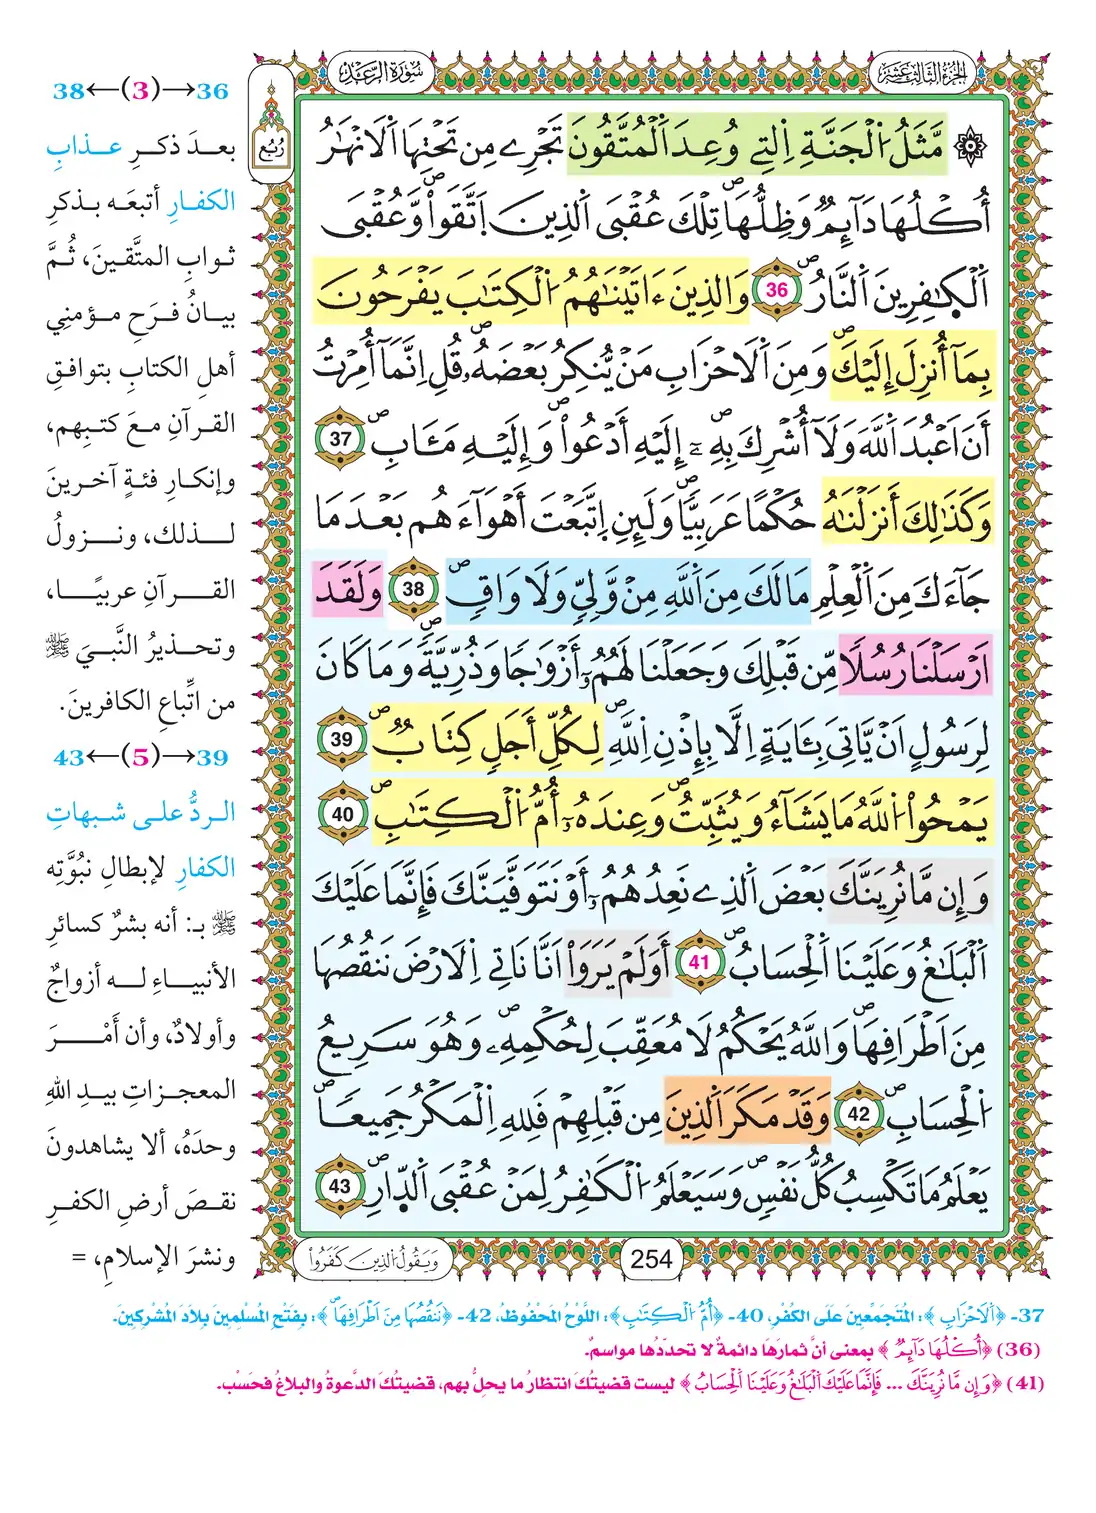 سُورَةُ الرَّعْدِ
الجُزْءُ الثَّالِثَ عَشَرَ
رُبُع
مَّثَلُ اُ۬لْجَنَّةِ اِ۬لتِے وُعِدَ اَ۬لْمُتَّقُونَ تَجْرِے مِن تَحْتِهَا اَ۬لَانْهَٰرُ
أُكْلُهَا دَآئِمٌ وَظِلُّهَاۖ تِلْكَ عُقْبَى اَ۬لذِينَ اَ۪تَّقَواْۖ وَّعُقْبَى
اَ۬لْكٰ۪فِرِينَ اَ۬لنَّارُۖ 36 وَالذِينَ ءَاتَيْنَٰهُمُ اُ۬لْكِتَٰبَ يَفْرَحُونَ
بِمَآ أُنزِلَ إِلَيْكَۖ وَمِنَ اَ۬لَاحْزَابِ مَنْ يُّنكِرُ بَعْضَهُۥۖ قُلِ اِنَّمَآ أُمِرْتُ
أَنَ اَعْبُدَ اَ۬للَّهَ وَلَآ أُشْرِكَ بِهِۦٓۖ إِلَيْهِ أَدْعُواْ وَإِلَيْهِ مَـَٔابِۖ 37
وَكَذَٰلِكَ أَنزَلْنَٰهُ حُكْماً عَرَبِيّاًۖ وَلَئِنِ اِ۪تَّبَعْتَ أَهْوَآءَهُم بَعْدَ مَا
جَآءَكَ مِنَ اَ۬لْعِلْمِ مَا لَكَ مِنَ اَ۬للَّهِ مِنْ وَّلِيّٖ وَلَا وَاقٖۖ 38 وَلَقَدَ
اَرْسَلْنَا رُسُلاً مِّن قَبْلِكَ وَجَعَلْنَا لَهُمُۥٓ أَزْوَٰجاً وَذُرِّيَّةًۖ وَمَا كَانَ
لِرَسُولٍ اَنْ يَّاتِيَ بِـَٔايَةٍ اِلَّا بِإِذْنِ اِ۬للَّهِۖ لِكُلِّ أَجَلٖ كِتَابٞۖ 39
يَمْحُواْ اُ۬للَّهُ مَا يَشَآءُ وَيُثَبِّتُۖ وَعِندَهُۥٓ أُمُّ اُ۬لْكِتَٰبِۖ 40
وَإِن مَّا نُرِيَنَّكَ بَعْضَ اَ۬لذِے نَعِدُهُمُۥٓ أَوْ نَتَوَفَّيَنَّكَ فَإِنَّمَا عَلَيْكَ
اَ۬لْبَلَٰغُ وَعَلَيْنَا اَ۬لْحِسَابُۖ 41 أَوَلَمْ يَرَوَاْ اَنَّا نَاتِے اِ۬لَارْضَ نَنقُصُهَا
مِنَ اَطْرَافِهَاۖ وَاللَّهُ يَحْكُمُ لَا مُعَقِّبَ لِحُكْمِهِۦۖ وَهُوَ سَرِيعُ
اُ۬لْحِسَابِۖ 42 وَقَدْ مَكَرَ اَ۬لذِينَ مِن قَبْلِهِمْ فَلِلهِ اِ۬لْمَكْرُ جَمِيعاًۖ
يَعْلَمُ مَا تَكْسِبُ كُلُّ نَفْسٖۖ وَسَيَعْلَمُ اُ۬لْكَٰفِرُ لِمَنْ عُقْبَى اَ۬لدّ۪ارِۖ 43
254
وَيَقُولُ اُ۬لذِينَ كَفَرُواْ
36→(3)←38
بعدَ ذكرِ عذابِ
الكفارِ أتبعَه بذكرِ
ثوابِ المتَّقينَ، ثُمَّ
بيانُ فرَحِ مؤمنِي
أهلِ الكتابِ بتوافقِ
القرآنِ معَ كتبِهم،
وإنكارِ فئةٍ آخرينَ
لذلك، ونزولُ
القرآنِ عربيًا،
وتحذيرُ النَّبيَ ﷺ
من اتِّباعِ الكافرينَ.
39→(5)←43
الردُّ على شبهاتِ
الكفارِ لإبطالِ نبُوَّتِه
ﷺ بـ: أنه بشرٌ كسائرِ
الأنبياءِ له أزواجٌ
وأولادٌ، وأن أَمْرَ
المعجزاتِ بيدِ اللهِ
وحدَهُ، ألا يشاهدونَ
نقصَ أرضِ الكفرِ
ونشرَ الإسلامِ، =
37- ﴿اَ۬لَاحْزَابِ﴾: المُتَجَمِّعِينَ عَلَى الكُفْرِ، 40- ﴿أُمُّ اُ۬لْكِتَٰبِ﴾: اللَّوْحُ المَحْفُوظُ، 42- ﴿نَنقُصُهَا مِنَ اَطْرَافِهَا﴾: بِفَتْحِ المُسْلِمِينَ بِلَادَ المُشْرِكِينَ.
(36) ﴿أُكْلُهَا دَآئِمٌ﴾ بمعنى أنَّ ثمارَهَا دائمةٌ لا تحدّدُها مواسمٌ.
(41) ﴿وَإِن مَّا نُرِيَنَّكَ ... فَإِنَّمَا عَلَيْكَ اَ۬لْبَلَٰغُ وَعَلَيْنَا اَ۬لْحِسَابُ﴾ ليست قضيتُكَ انتظارُ ما يحلُ بهم، قضيتُكَ الدَّعوةُ والبلاغُ فحَسْب.